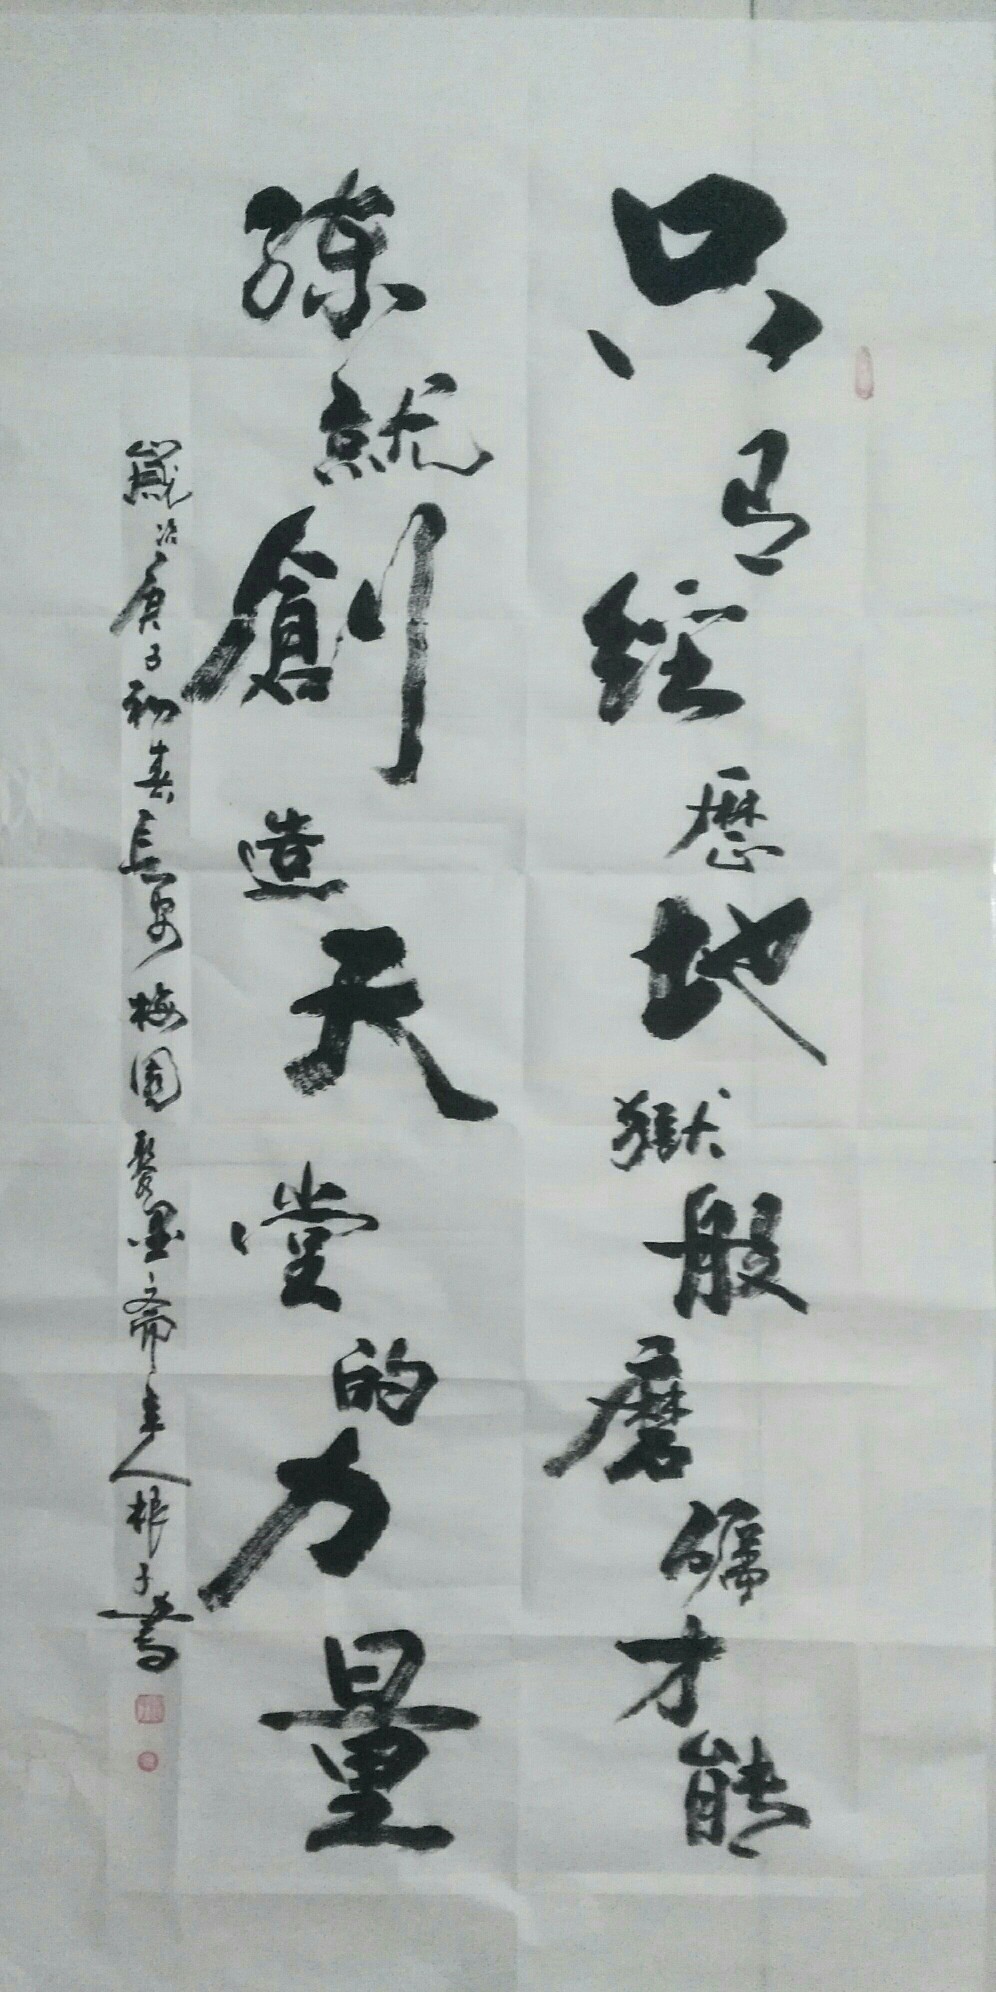 只有經歷地獄般磨礪才能
練就創造天堂的力量
歲次庚子初春長安梅園聚墨齋主人根子書